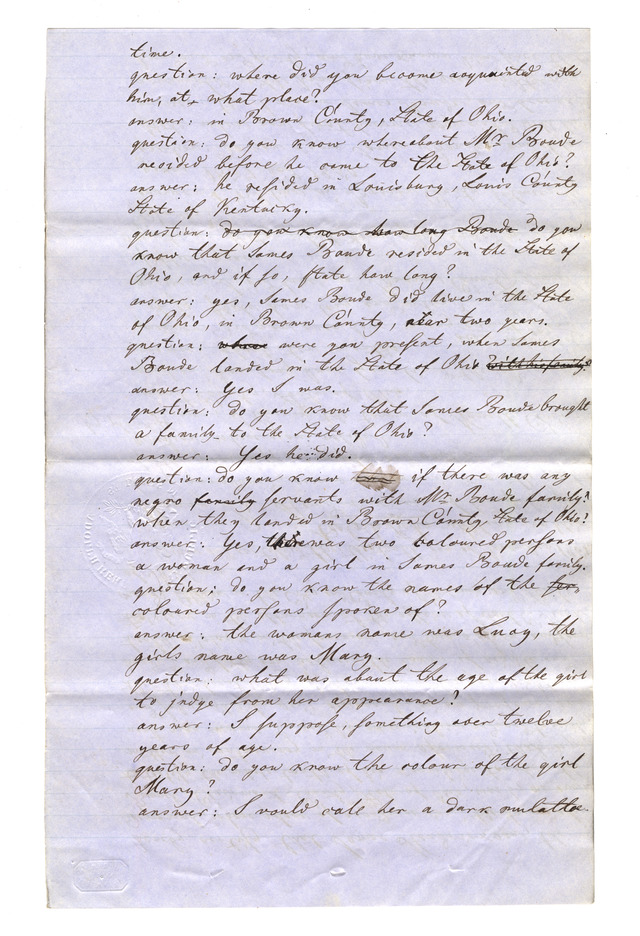 time.
question: where did you become acquainted with
him, at what place?
answer: in Brown County, State of Ohio.
question: do you know whereabout Mr Boude
recided before he came to the State of Ohio?
answer: he resided in Louisburg, Louis County
State of Kentucky.
question: do you know how long Boude do you
know that James Boude resided in the State of
Ohio, and if so, state how long?
answer: yes, James Boude did live in the State
of Ohio, in Brown County, near two years.
question: were you present, when James
Boude landed in the State of Ohio with his family?
answer: Yes I was.
question: do you know that James Boude brought
a family to the State of Ohio?
answer: Yes he did.
question: do you know if there was any
negro family servants with Mr Boude family?
when they landed in Brown County, State of Ohio?
answer: Yes, there was two coloured persons
a woman and a girl in James Boude family.
question: do you know the names of the
coloured persons spoken of?
answer: the womans name was Lucy, the
girls name was Mary.
question: what was about the age of the girl
to judge from her appearance?
answer: I suppose, something over twelve
years of age.
question: do you know the colour of the girl
Mary?
answer: I would call her a dark mulattoe.